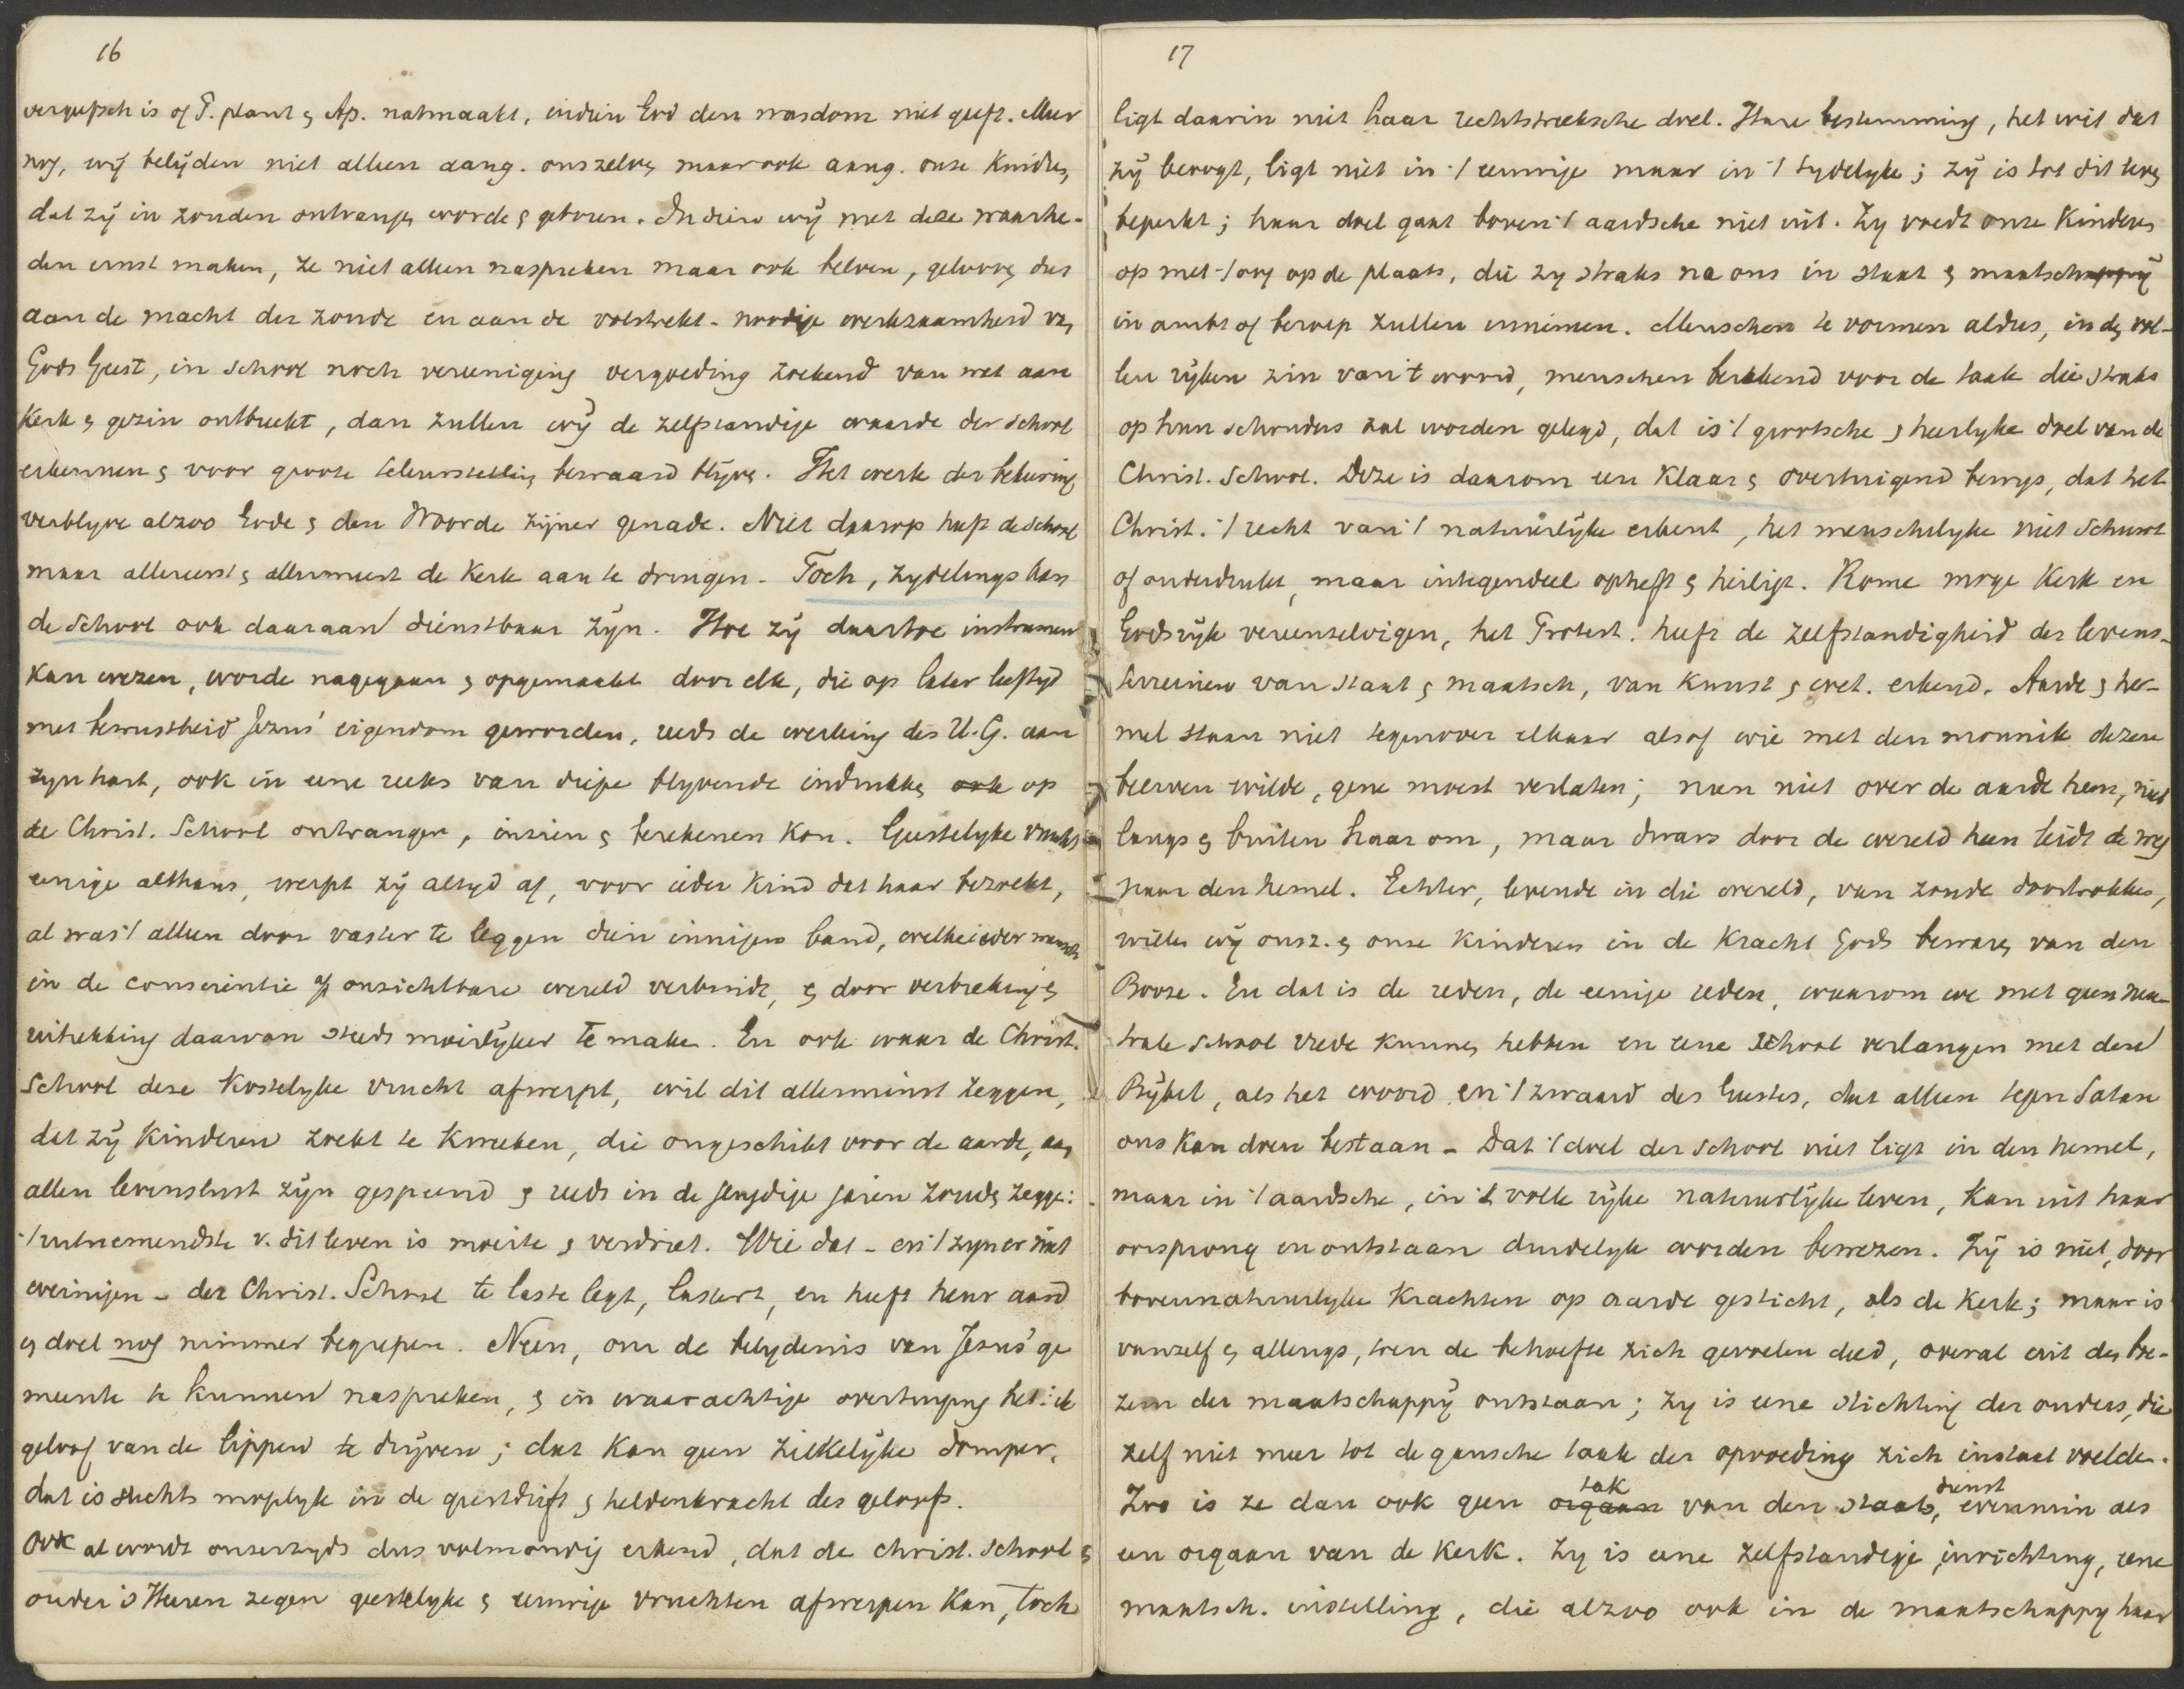 16
vergeefsch is of P. plant & Ap. natmaakt, indien God den wasdom niet geeft. Meer
nog, wij belijden niet alleen aang. ons zelve, maar ook aang. onze kinders,
dat zij in zonden ontvange, worde & geboren. Indien wij met deze waarhe-
den ernst maken, ze niet alleen naspreken maar ook beleven, geloove, dus
aan de macht der zonde en aan de volstrekt-noodige werkzaamheid va,
Gods Geest, in school noch vereeniging vergoeding zoekend van wat aan
Kerk & gezin ontbreekt, dan zullen wij de zelfstandige waarde der school
erkennen & voor groote teleurstelling bewaard blijve. Het werk der bekeering
verblijve alzoo Gode & den Woorde zijner genade. Niet daarop heeft de school
maar allereerst & allermeest de Kerk aan te dringen. Toch, zydelings kan
de school ook daaraan dienstbaar zijn. Hoe zij daartoe instrument
kan wezen, worde nagegaan & opgemaakt door elk, die op later leeftyd
met bewustheid Jezus' eigendom geworden, reeds de werking des H.G. aan
zyn hart, ook in eene reeks van diepe blyvende indrukke, ook op
de Christ. School ontvangen, inzien & berekenen kon. Geestelyke vrucht
eenige althans, werpt zij altyd af, voor ieder kind dat haar bezoekt,
al was 't alleen door vaster te leggen dien innigen band, welke ieder mensch
in de conscientie a/ onzichtbare wereld verbindt, & door verbreking &
uitrekking daarvan steeds moeilijker te make. En ook waar de Christ.
School deze kostelyke vrucht afwerpt, wil dit allerminst zeggen,
dat zij kinderen zoekt te kweeken, die ongeschikt voor de aarde, aan
allen levenslust zijn gespeend & reeds in de jeugdige jaren zoude zegge:
't uitnemendste v. dit leven is moeite & verdriet. Wie dat - en 't zyn er niet
weinigen - der Christ. School te laste legt, lastert, en heeft heur aard
& doel nog nimmer begrepen. Neen, om de belydenis van Jezus' ge
meente te kunnen naspreken, & in waarachtige overtuiging het: ik
geloof van de lippen te drijven; dat kan geen ziekelijke domper,
dat is slechts mogelyk in de geestdrift & heldenkracht des geloofs.
Ook al wordt onzerzyds dus volmondig erkend, dat de christ. school &
onder 's Heeren zegen geestelyke & eeuwige vruchten afwerpen kan, toch
17
ligt daarin niet haar rechtstreeksche doel. Hare bestemming, het wit dat
zij beoogt, ligt niet in 't eeuwige maar in 't tydelyke; zij is tot dit leve,
beperkt; haar doel gaat boven 't aardsche niet uit. Zy voedt onze Kindere,
op met 't oog op de plaats, die zy straks na ons in staat & maatschappij
in ambt of beroep zullen innemen. Menschen te vormen aldus, in de, vol-
len rijken zin van 't woord, menschen berekend voor de taak die straks
op hun schouders zal worden gelegd, dat is 't grootsche & heerlyke doel van de
Christ. School. Deze is daarom een klaar & overtuigend bewys, dat het
Christ. 't recht van 't natuurlijke erkent, het menschelyke niet schuwt
of onderdrukt, maar integendeel opheft & heiligt. Rome moge Kerk en
Godsrijk vereenzelvigen, het Protest. heeft de zelfstandigheid der levens-
terreinen van staat & maatsch, van kunst & wet. erkend. Aarde & he-
mel staan niet tegenover elkaar alsof wie met den monnik dezen
beërven wilde, gene moest verlaten; neen niet over de aarde heen, niet
langs & buiten haar om, maar dwars door de wereld heen leidt de weg
naar den hemel. Echter, levende in die wereld, van zonde doortrokken,
wille, wij onsz. & onze kinderen in de kracht Gods beware, van den
Booze. En dat is de reden, de eenige reden, waarom we met geen neu-
trale school vrede kunne, hebben en eene school verlangen met den
Bijbel, als het woord en 't zwaard des Geestes, dat alleen tegen Satan
ons kan doen bestaan - Dat 't doel der school niet ligt in den hemel,
maar in 't aardsche, in 't volle rijke natuurlijke leven, kan uit haar
oorsprong en ontstaan duidelyk worden bewezen. Zij is niet, door
bovennatuurlyke krachten op aarde gesticht, als de Kerk; maar is
vanzelf & allengs, toen de behoefte zich gevoelen deed, overal uit de, boe-
zem der maatschappij ontstaan; zy is eene stichting der ouders, die
zelf niet meer tot de gansche taak der opvoeding zich instaat voelde.
Zoo is ze dan ook geen orgaan tak van den staats, dienst evenmin als
een orgaan van de Kerk. Zy is eene zelfstandige inrichting, eene
maatsch. instelling, die alzoo ook in de maatschappy haar